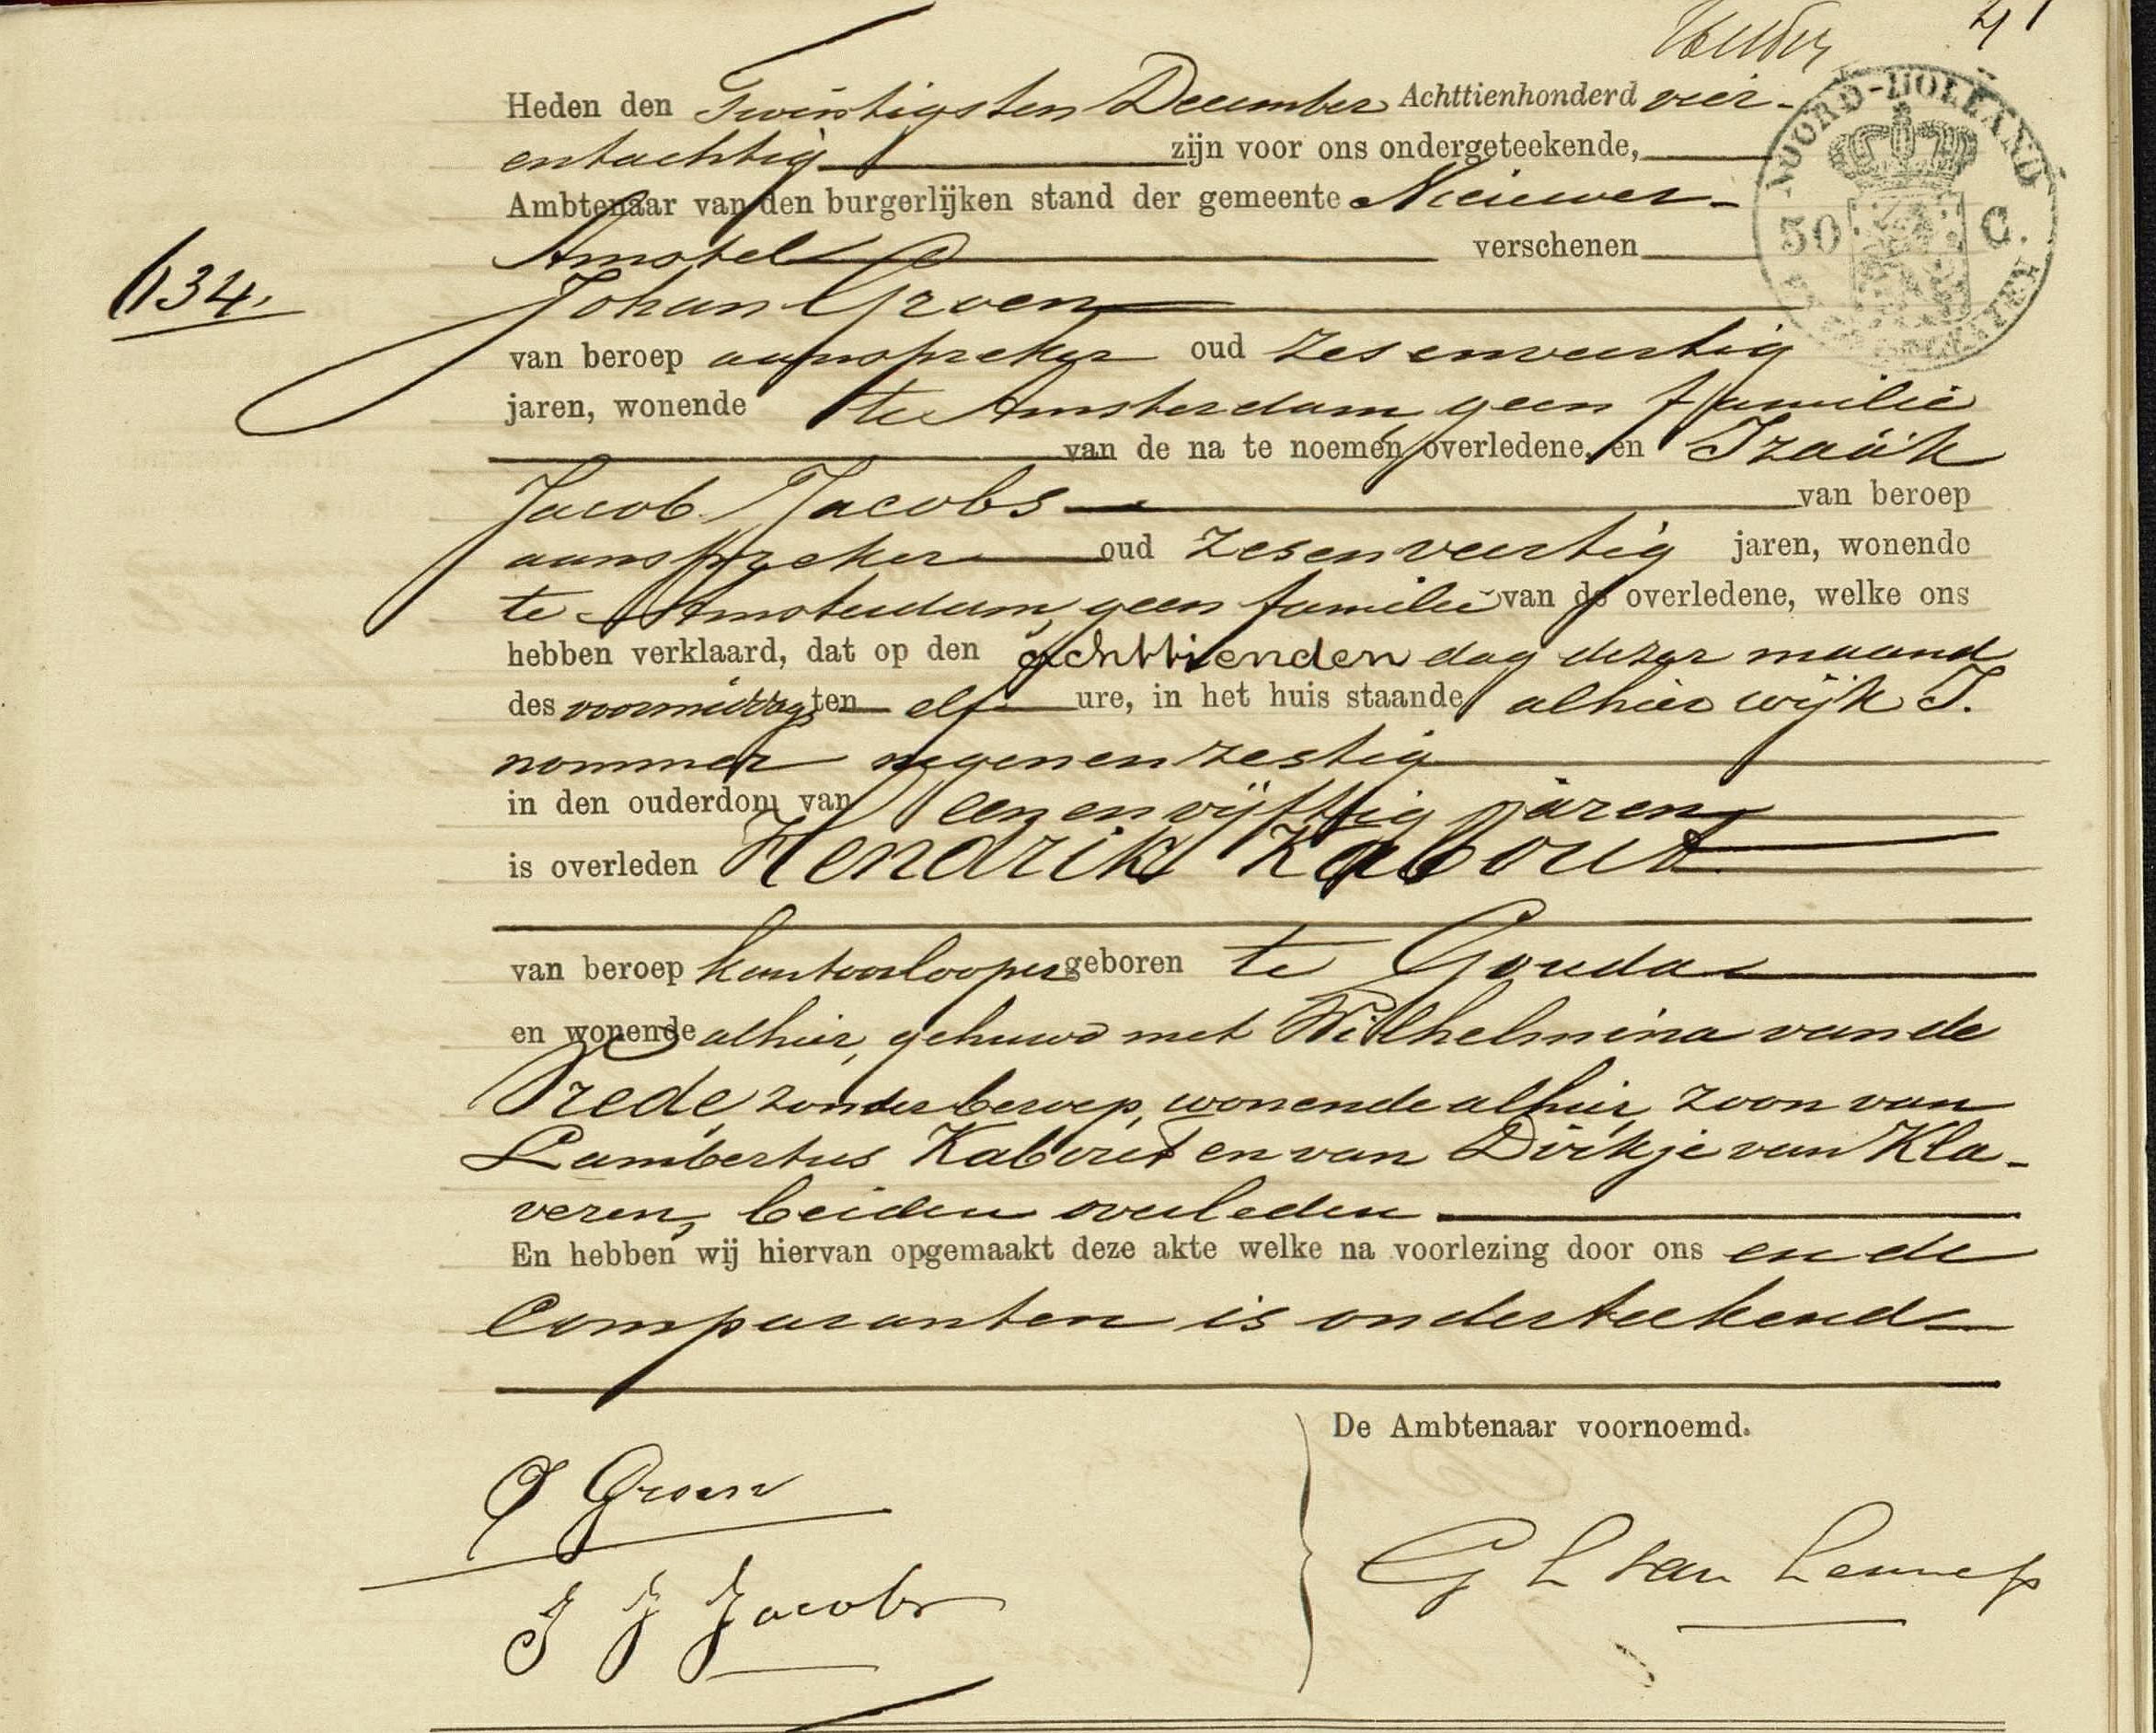 41
NOORD-HOLLAND
50 C.
Heden den Twintigsten December Achttienhonderd vier-
entachtig zijn voor ons ondergeteekende,
Ambtenaar van den burgerlijken stand der gemeente Nieuwer-
Amstel verschenen
634.
Johan Groen
van beroep aanspreker oud zesenveertig
jaren, wonende te Amsterdam, geen familie
van de na te noemen overledene, en Izaäk
Jacob Jacobs van beroep
aanspreker oud zesenveertig jaren, wonende
te Amsterdam, geen familie van de overledene, welke ons
hebben verklaard, dat op den achttienden dag dezer maand
des voormiddags ten elf ure, in het huis staande alhier wijk I.
nommer negenenzestig
in den ouderdom van eenenvijftig jaren,
is overleden Hendrik Kabout
van beroep kantoorlooper geboren te Gouda
en wonende alhier, gehuwd met Wilhelmina van de
Vrede, zonder beroep, wonende alhier, zoon van
Lambertus Kabout en van Dirkje van Kla-
veren, beiden overleden
En hebben wij hiervan opgemaakt deze akte welke na voorlezing door ons en de
Comparanten is onderteekend
De Ambtenaar voornoemd.
J Groen
G L van Lennep
J J Jacobs